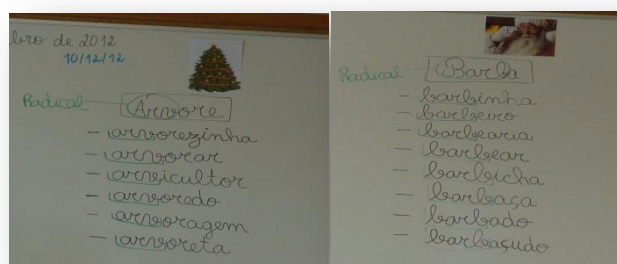 bro de 2012
10/12/12
Radical Árvore
- arvorezinha
- arvorar
- arvicultor
- arvoredo
- arvoragem
- arvoreta
Radical Barba
- barbinha
- barbeiro
- barbearia
- barbear
- barbicha
- barbaça
- barbado
- barbaçudo